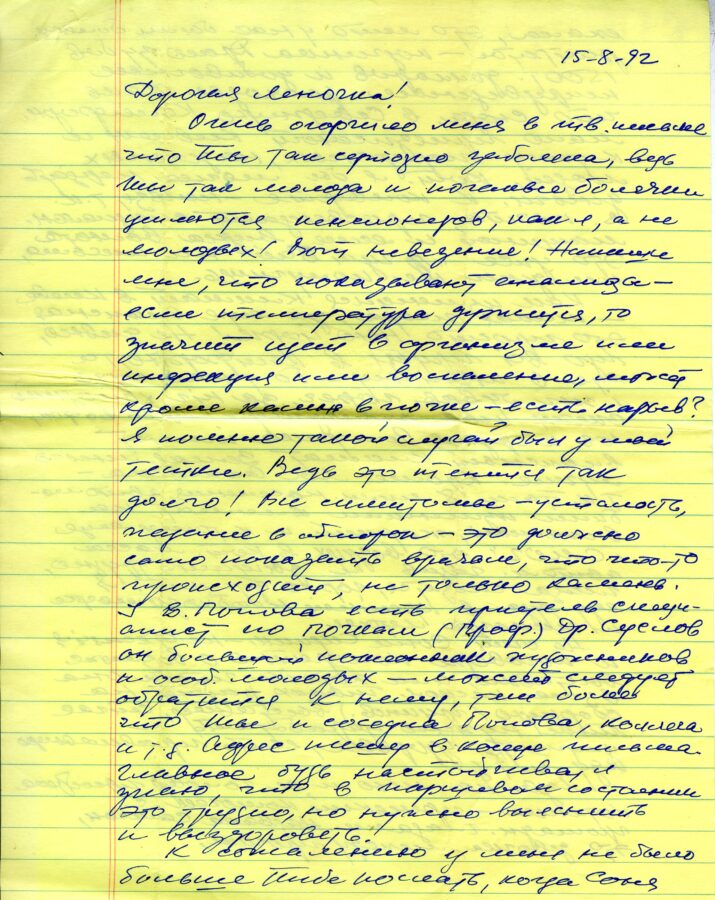 15-8-92
Дорогая Леночка!
Очень огорчило меня в тв. письме
что ты так серьозно заболела, ведь
ты так молода и почечные болячки
у пенсионеров, как я, а не
молодых! Вот невезение! Напиши
мне, что показывают анализы –
если температура держится, то
значит идет в организме или
инфекция или воспаление, может
кроме камня в почке – есть нарыв?
Я помню такой случай был у моей
тетки. Ведь это тянется так
долго! Все симптомы – усталость,
падение в обморок – это должно
само показать врачам, что что-то
происходит, не только камень.
У В. Попова есть приятель специ-
алист по почкам (проф.) Др. Суслов
он большой поклонник художников
и особ. молодых – может следует
обратится к нему, тем более
что ты и соседка Попова, коллега
и т.д. Адрес пишу в конце письма.
Главное будь настойчивая, я
знаю, что в паршивом состоянии
это трудно, но нужно выяснить
и выздороветь.
К сожалению у меня не было
больше тебе послать, когда Соня